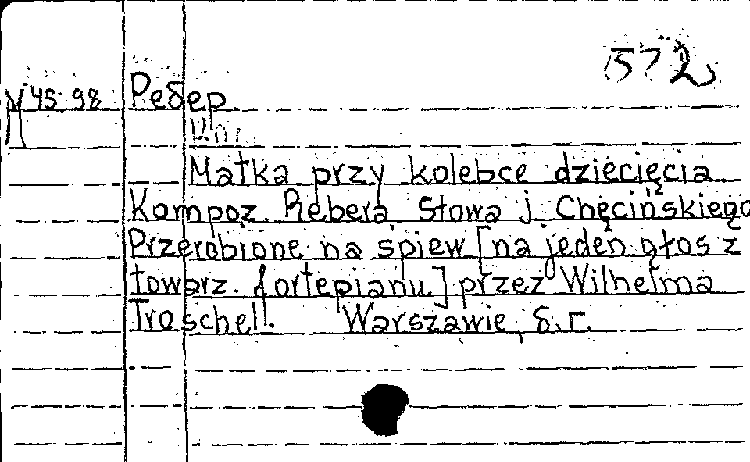 572
45 98 Ребер
Matka przy kolebce dziecięcia
Kompoz. Rebera Słowa J. Chęcińskiego
Przerobione na śpiew [na jeden głos z
towarz. fortepianu] przez Wilhelma
Troschell. Warszawie, б.г.